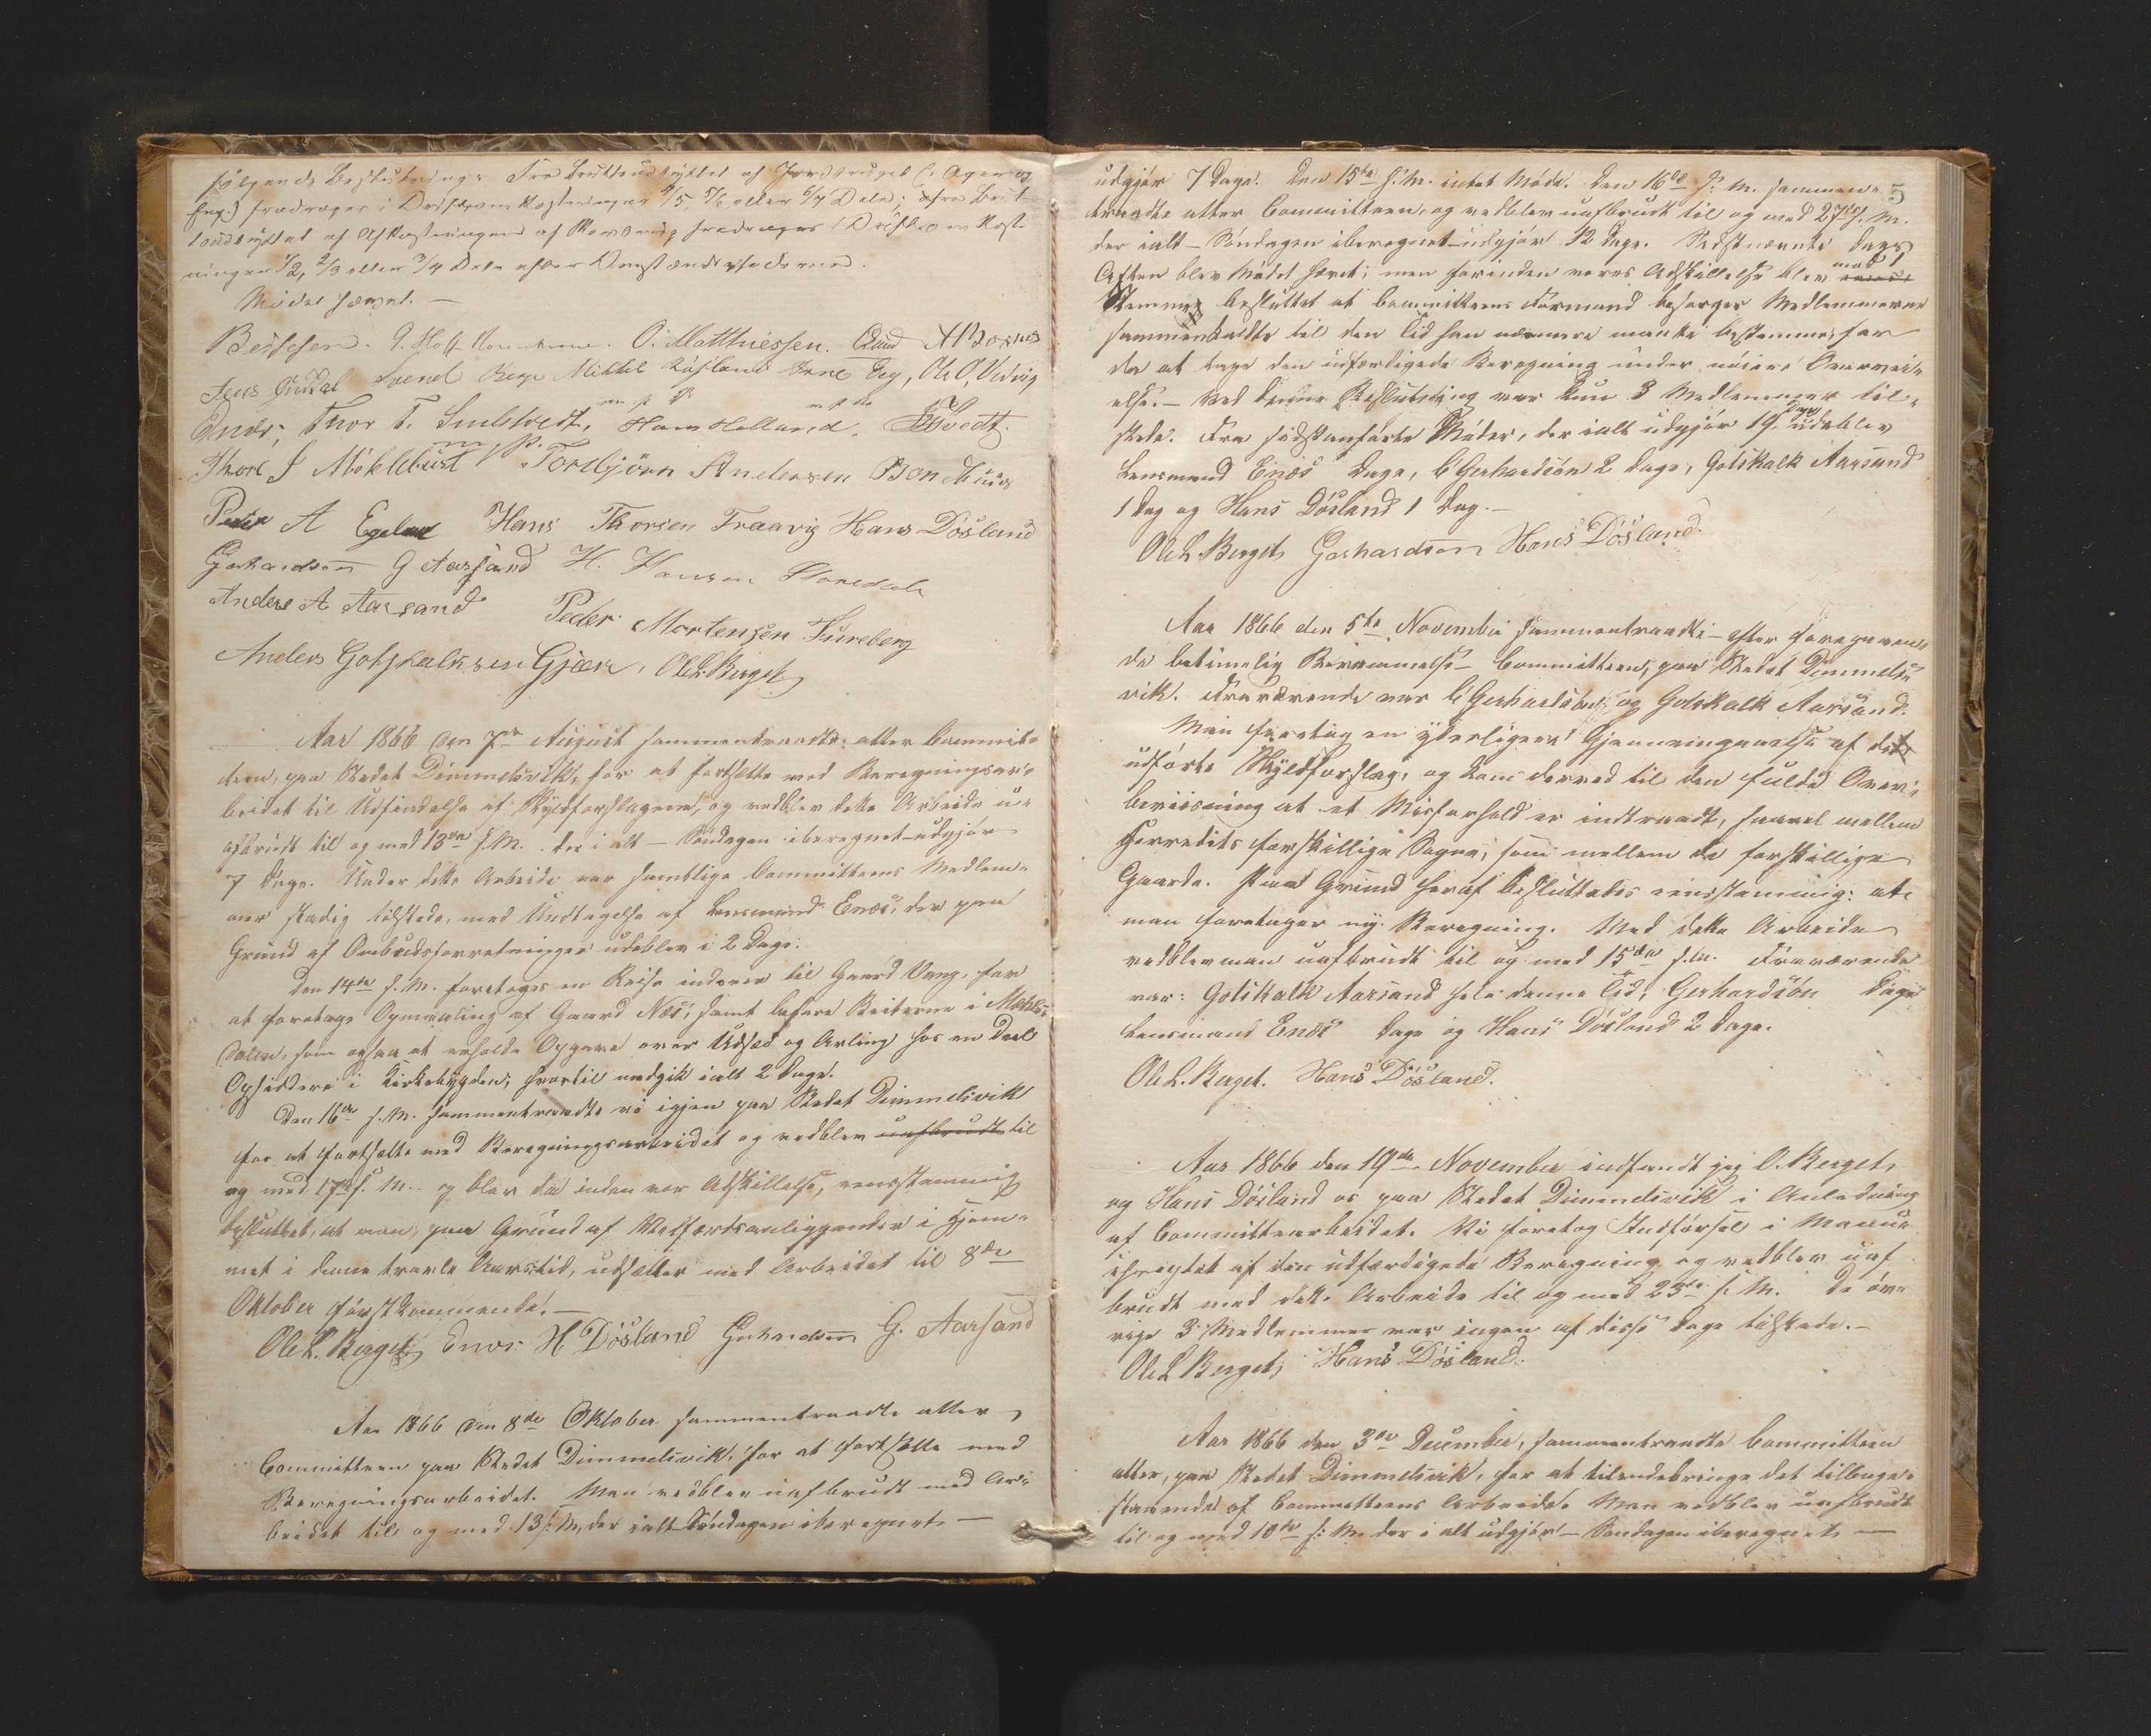 følgende Beslutning: Fra Bruttoudbyttet af Jordbruget (: Ager og
Eng:) fradrages i Driftsomkostninger 4/5, 5/6 eller 6/7 Dele; fra Brut-
toudbyttet af Afkastningen af Skovbrug fradrages i Driftsomkost-
ninger 1/2, 2/3 eller 3/4 Dele efter Omstændighederne.
Mødet hævet. —
Beichsen. O. Matthiessen.
Jens Guddal Svend Berge Mikkel Røsland Arne Eeg, Ole O. Vedvig
Enæs, Thor T. Hans Holland.
m. p. P.
Thore J Møklebust Torbjörn Andersen Bondhuus
Peder A Egeland Hans Thorsen Traavig Hans Døsland
Gerhardsen G Aarsand H. Hansen
Anders A Aarsand Peder Mortensen Sureberg
Anders Gotskalksen Gjære, Ole L. Berget,
Aar 1866 den 7de August sammentraadte atter Commit-
teen, paa Stedet Dimmelsvik, for at fortsætte med Beregningsar-
beidet til Udfindelse af Skyldforslagene, og vedblev dette Arbeide u-
afbrudt til og med 13de s. M. der i alt — Søndagen iberegnet — udgjør
7 Dage. Under dette Arbeide var samtlige Committeens Medlem-
mer stadig tilstede, med Undtagelse af Lensmand Enæs, der paa
Grund af Ombudsforretninger udeblev i 2 Dage.
Den 14de s. M. foretoges en Reise indover til Gaard Vang, for
at foretage Opmaaling af Gaard Næs, samt befare Beiterne i
Dalen, som ogsaa at erholde Opgave over Udsæd og Avling hos en Deel
Opsiddere i Kirkebygden, hvortil medgik ialt 2 Dage.
Den 16de s. M. sammentraadte vi igjen paa Stedet Dimmelsvik
for at fortsætte med Beregningsarbeidet og vedblev uafbrudt til
og med 17de s. M. og blev da inden vor Adskillelse, eensstemmig
besluttet, at man, paa Grund af Velfærdsanliggender i Hjem-
met i denne travle Aarstid, udsætter med Arbeidet til 8de
Oktober førstkommende. —
Ole L. Berget, Enæs. H Døsland Gerhardsen G. Aarsand
Aar 1866 den 8de Oktober sammentraadte atter
Committeen paa Stedet Dimmelsvik, for at fortsætte med
Beregningsarbeidet. Man vedblev uafbrudt med Ar-
beidet til og med 13 s. M, der ialt Søndagen iberegnet —
5
udgjør 7 Dage. Den 15de s. M. intet Møde. Den 16de s. M. sammen-
traadte atter Committeen, og vedblev uafbrudt til og med 27de s. M.
der ialt — Søndagen iberegnet — udgjør 12 Dage. Sidstnævnte Dags
Aften blev Mødet hævet; men forinden vores Adskillelse blev med 1
Stemme besluttet at Committeens Formand besørger Medlemmerne
sammenkaldte til den Tid han nærmere maatte bestemme, for
da at tage den udfærdigede Beregning under nøiere Overvei-
else. — Ved denne Beslutning var kun 3 Medlemmer til-
stede. Fra sidstanførte Møder, der ialt udgjør 19 Dage, udeblev
Lensmand Enæs Dage, C Gerhardsøn 2 Dage, Gotskalk Aarsand
1 Dag og Hans Døsland 1 Dag. —
Ole L. Berget, Gerhardsen Hans Døsland.
Aar 1866 den 5te November sammentraadte — efter foregaaen-
de betimelig Berammelse — Committeen, paa Stedet Dimmels-
vik. Fraværende var C Gerhardsen, og Gotskalk Aarsand.
Man foretog en yderligere Gjennemgaaelse af det
udførte Skyldforslag, og kom derved til den fulde Over-
beviisning at et Misforhold er indtraadt, saavel mellem
Herredets forskillige Sogne, som mellem de forskillige
Gaarde. Paa Grund heraf besluttedes eensstemmig: at
man foretager ny Beregning. Med dette Arbeide
vedblev man uafbrudt til og med 15de s. M. Fraværende
var: Gotskalk Aarsand hele denne Tid, Gerhardsøn Dage
Lensmand Enæs Dage og Hans Døsland 2 Dage.
Ole L. Berget. Hans Døsland.
Aar 1866 den 19de November indfandt jeg O. Berget,
og Hans Døsland os paa Stedet Dimmelsvik i Anledning
af Committearbeidet. Vi foretog Indførsel i Manu-
skriptet af den udfærdigede Beregning og vedblev uaf
brudt med dette Arbeide til og med 23de s. M. De øv-
rige 3 Medlemmer var ingen af disse Dage tilstede. —
Ole L Berget, Hans Døsland.
Aar 1866 den 3de December, sammentraadte Committeen
atter, paa Stedet Dimmelsvik, for at tilendebringe det tilbage-
staaende af Committeens Arbeide. Man vedblev uafbrudt
til og med 10de s. M. der i alt udgjør — Søndagen iberegnet —